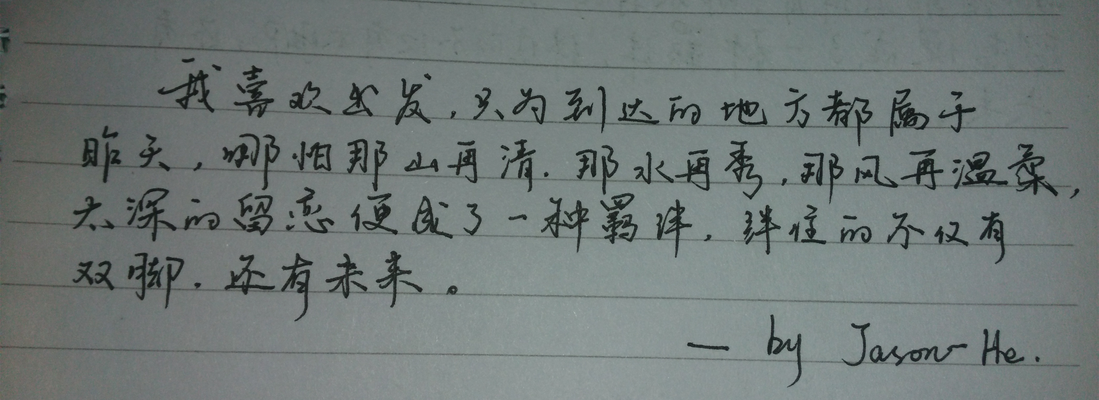 我喜欢出发,只为到达的地方都属于
昨天,哪怕那山再清.那水再秀,那风再温柔,
太深的留恋便成了一种羁绊,绊住的不仅有
双脚.还有未来。
— by Jason He.